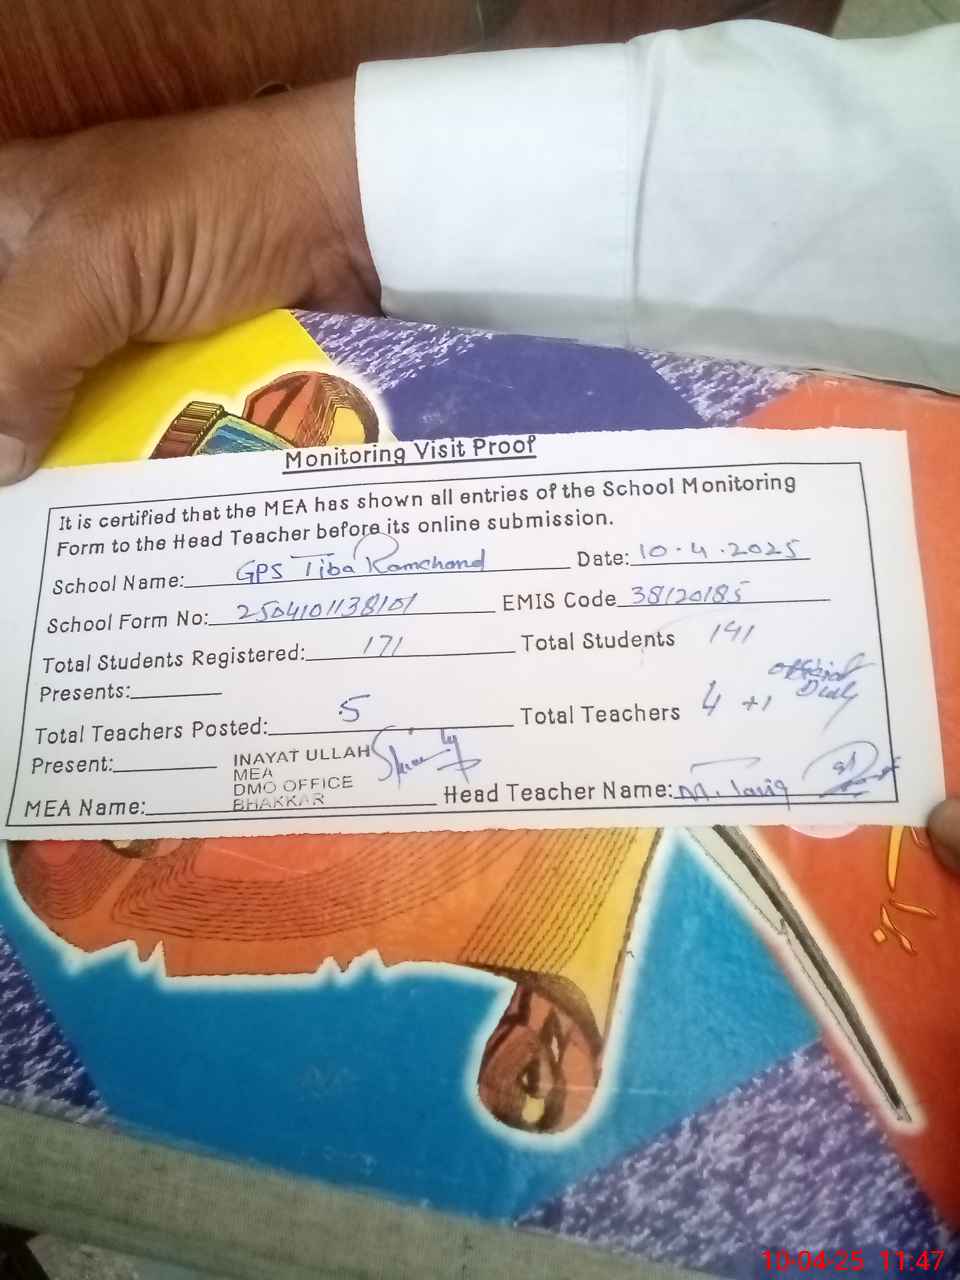 Monitoring Visit Proof
It is certified that the MEA has shown all entries of the School Monitoring
Form to the Head Teacher before its online submission.
School Name: GPS Tiba Ramchand Date: 10.4.2025
School Form No: 2504101138101 EMIS Code 38120185
Total Students Registered: 171 Total Students 141
Presents:
Total Teachers Posted: 5 Total Teachers 4 +1 official Duty
Present:
INAYAT ULLAH
MEA
DMO OFFICE
BHAKKAR
MEA Name: Head Teacher Name: M. Tariq
10-04-25 11:47